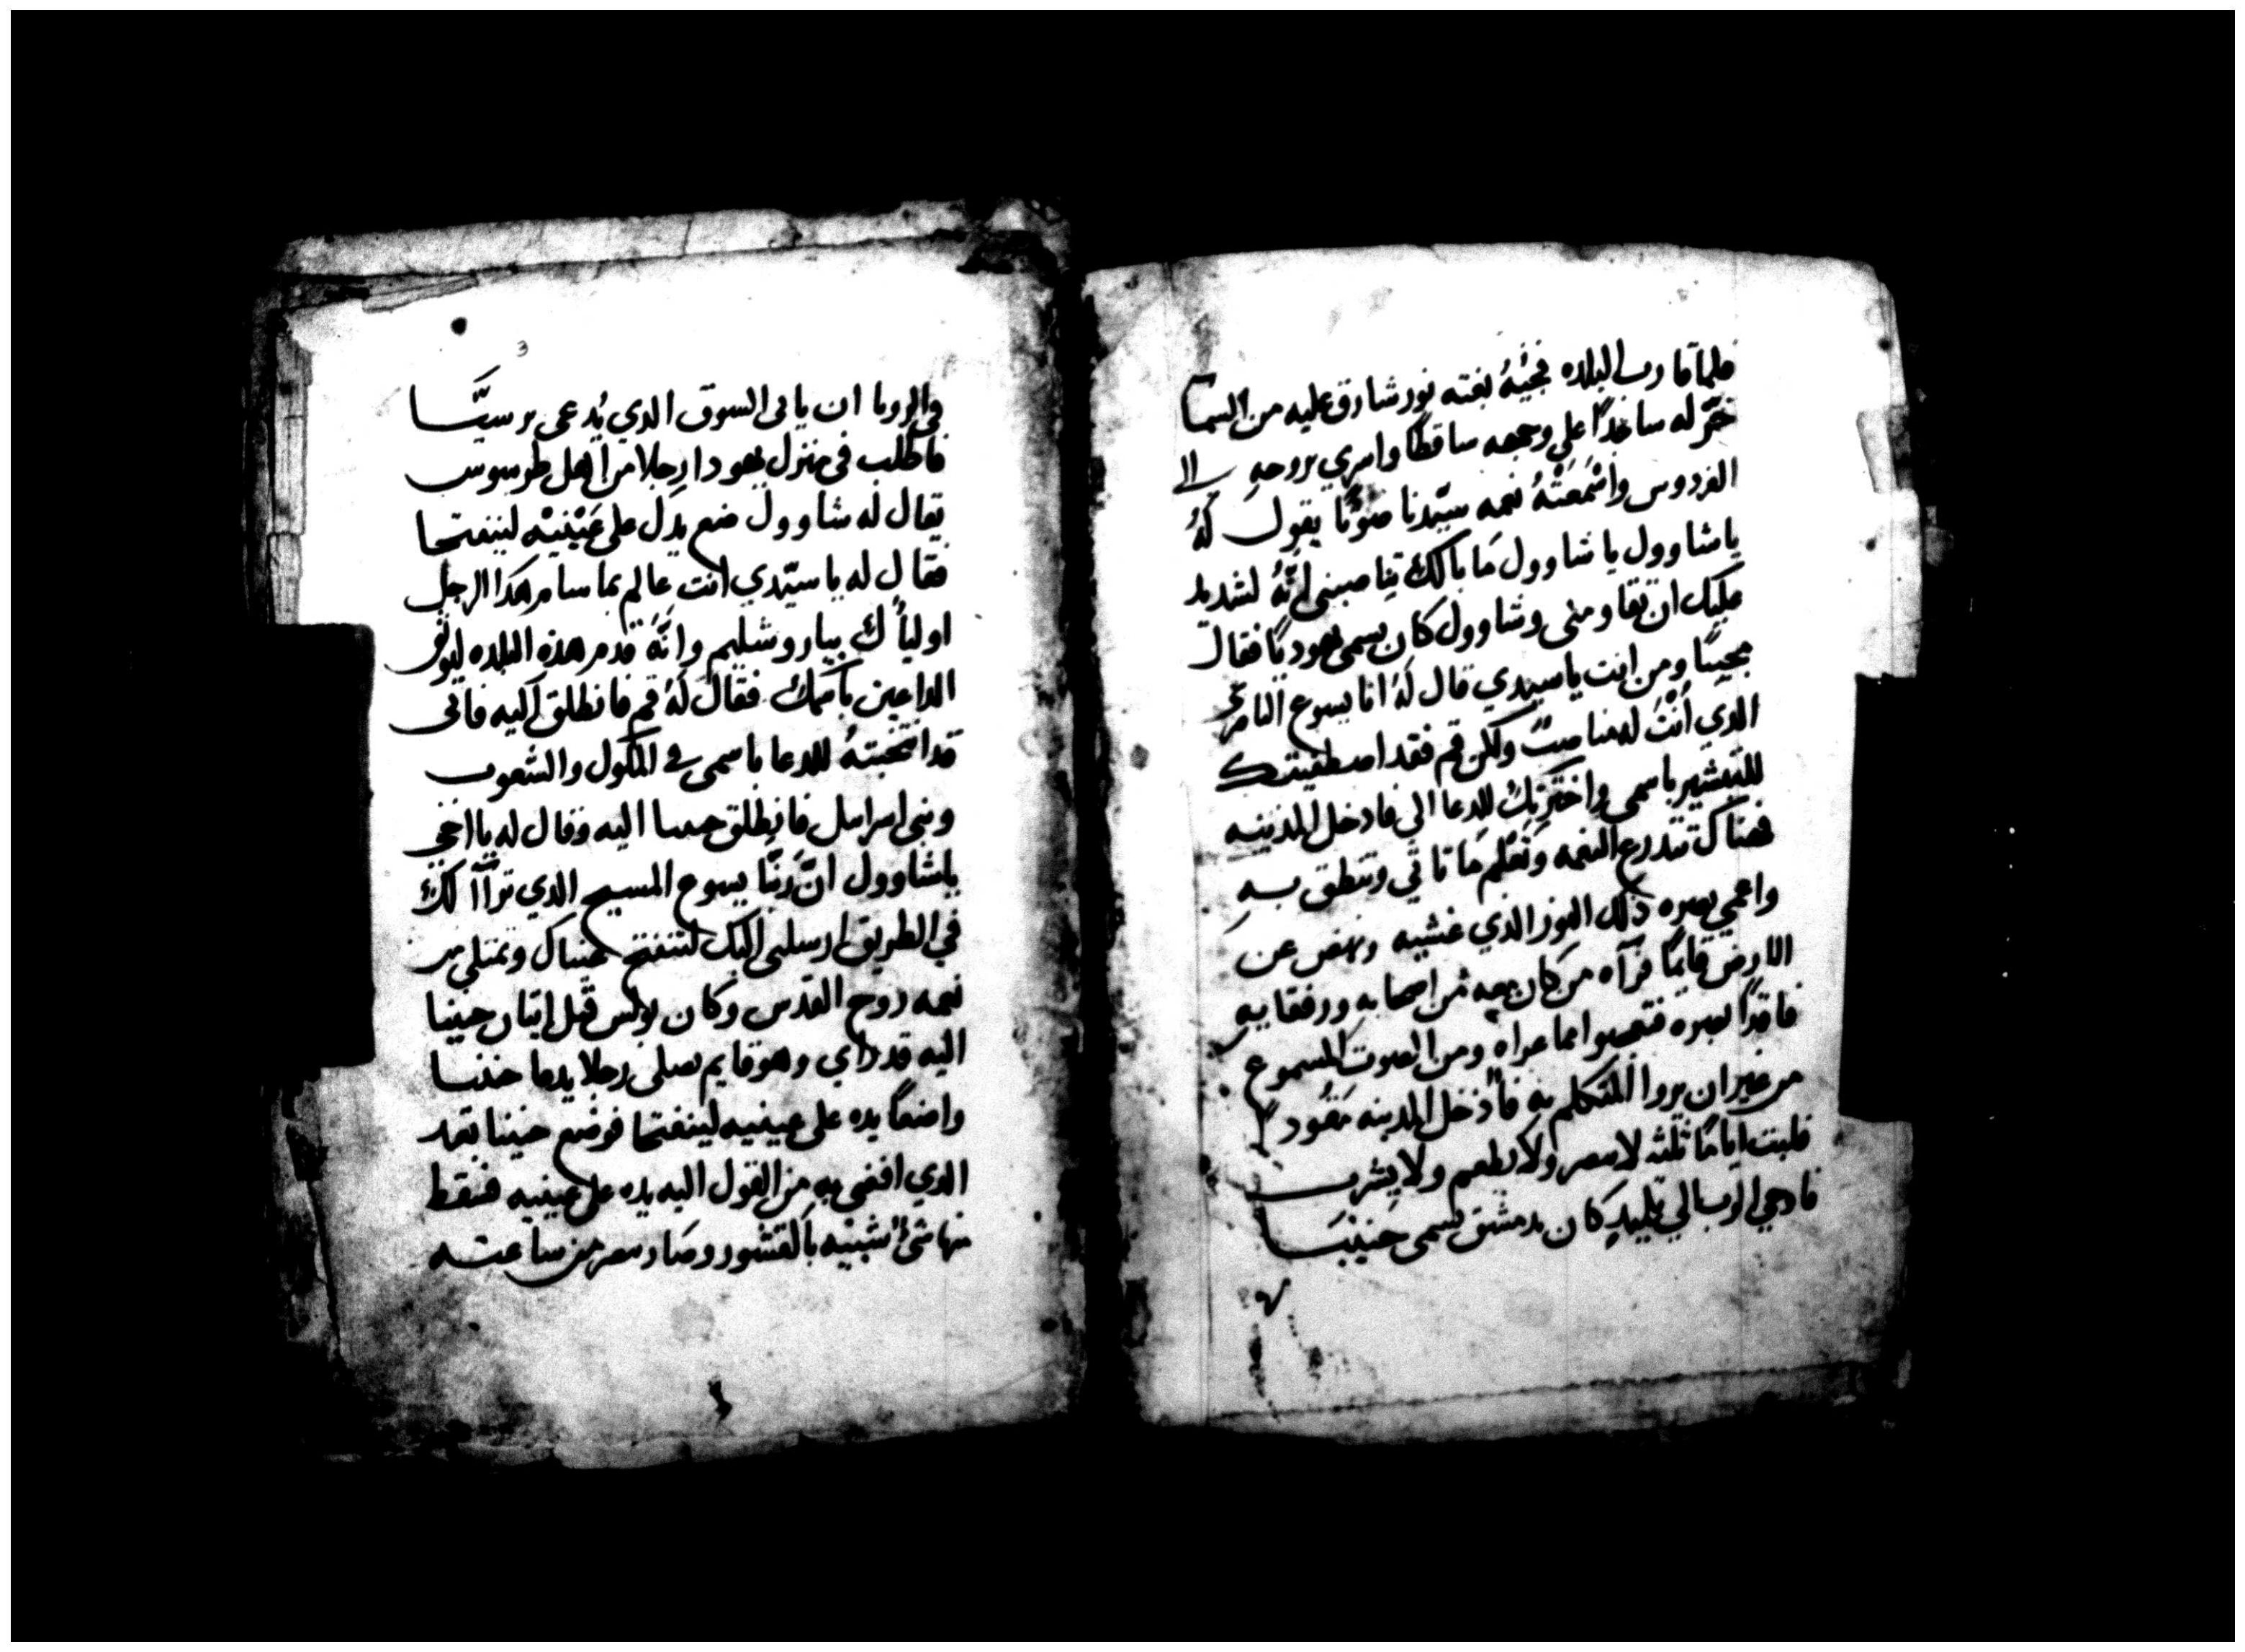 فلما قارب البلده فجيئهُ بغته نور شارق عليه من السما
خرّ له ساجدًا على وجهه ساقطًا واسري بروحهِ الى
الفردوس واسْمَعَتْهُ نعمه سيّدنا صوتًا يقول لهُ
ياشاوول يا شاوول مَا بالك تناصبني انّهُ لشديد
عليك ان تقاومني وشاوول كان يسمى يهوديًا فقال
مجيبًا ومن انت يا سيدي قال لهُ انا يسوع الناصري
الدي انْتَ له مناصبٌ ولكن قم فقد اصطفيتك
للتبشير باسمي واخترتك للدعا الي فادخل المدينه
فهناك تتدرع النعمه وتعْلم مَا تاتي وتنطق بهِ
واعمي بصره ذلك النور الدي غشيه ونهض عن
الارض قايمًا فرآه من كان معه من اصحابه ورفقايه
فاقدًا بصره فتعجبوا مما عراه ومن الصوت المسموع
من غير ان يروا المتكلم به فأدخل المدينه مَقُودًا
فلبت ايامًا ثلثه لا يبصر ولا يطعم ولا يشرب
فاوحي الرب الي تلميدٍ كان بدمشق يسمى حَنِينَيا
3
في الرويا ان ياتي السوق الدي يُدعى برسيَّسا
فاطلب في منزل يهودا رجلا من اهل طرسوس
يقال له شاوول ضع يدل على عَيْنيْه لينفتحا
فقال له يا سيّدي انت عالم بما سام هكدا الرجل
اولياك بياروشليم وانّهُ قدم هذه البلده ليوثق
الداعين باسمك فقال لهُ قم فانطلق اليه فاني
قد انتخبتهُ للدعا باسمي في الملول والشعوب
وبني اسراييل فانطلق حنينا اليه وقال له يا اخي
ياشاوول انّ ربّنا يسوع المسيح الدي ترآآ لك
في الطريق ارسلني اليك لتنفتح عيناك وتمتلى من
نعمه روح القدس وكان بولس قبل اتيان حنينا
اليه قد راي وهو قايم يصلى رجلا يدعا حنينا
واضعًا يده على عينيه لينفتحا فوضع حنينا بعد
الدي افضى به من القول اليه يده على عينيه فسقط
منها شيءٌ شبيْه بالقشور وصَار يبصر من ساعته